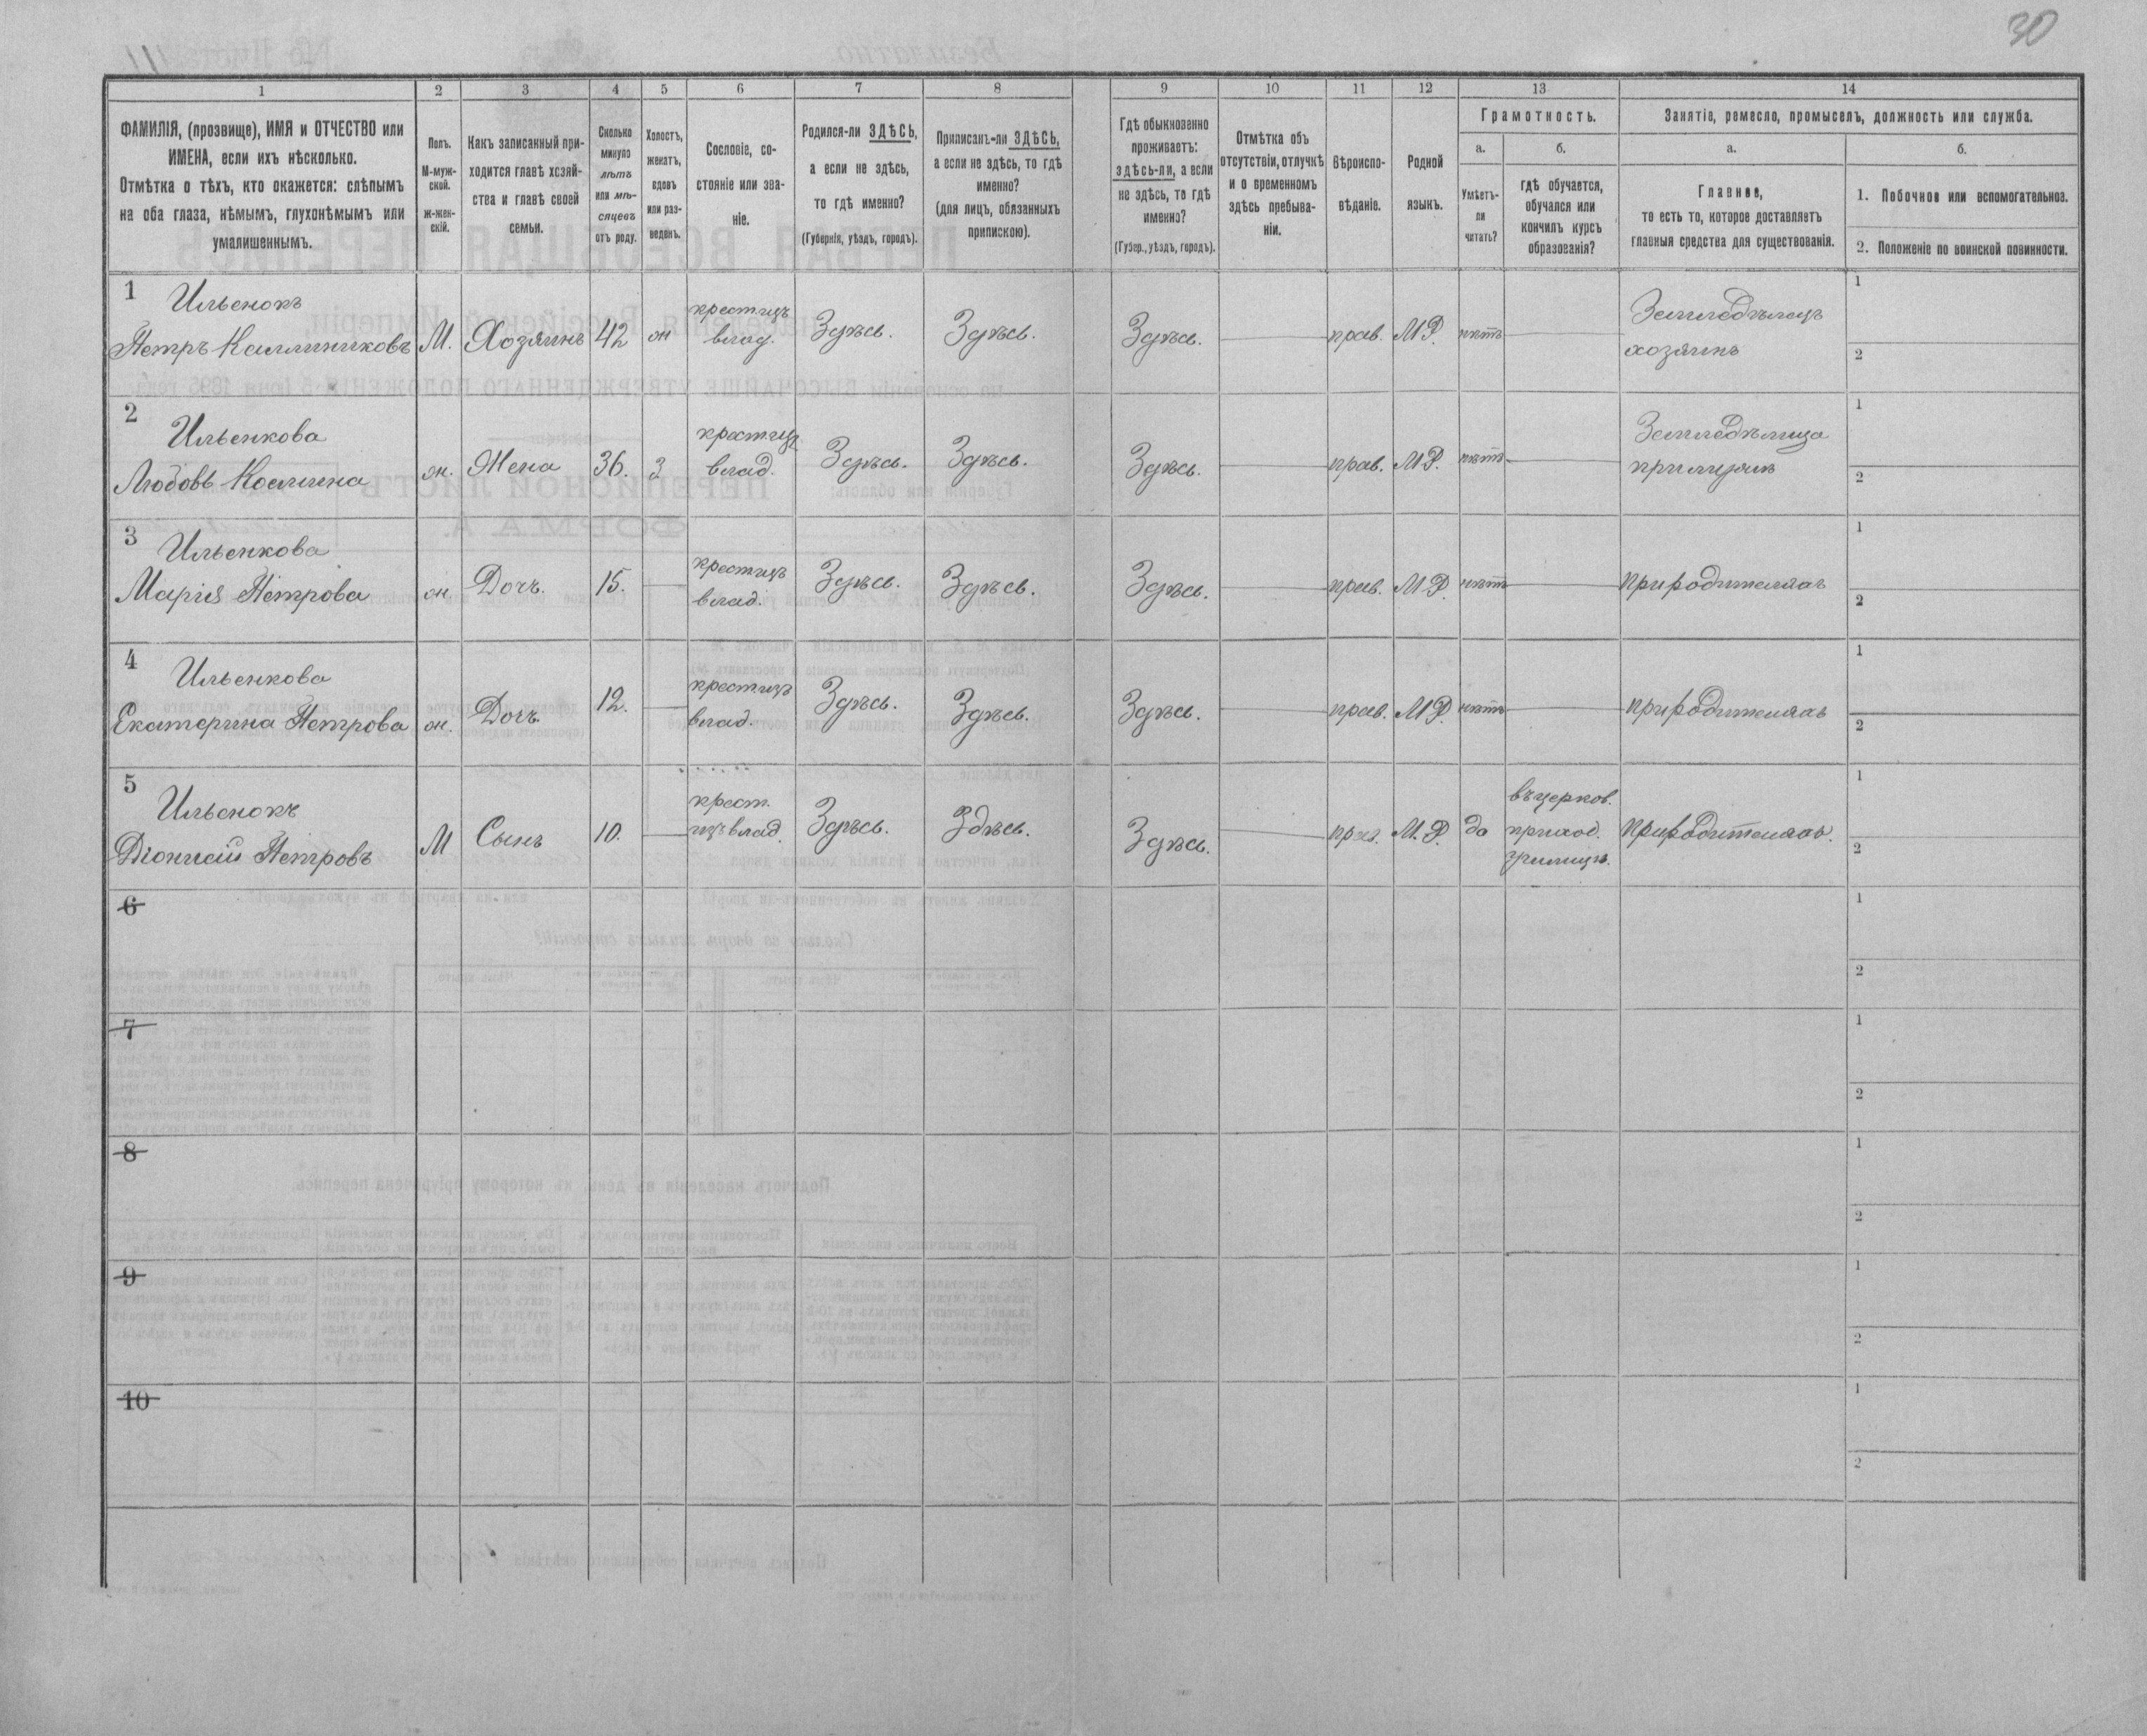 30
1 2 3 4 5 6 7 8 9 10 11 12 13 14
ФАМИЛІЯ, (прозвище), ИМЯ и ОТЧЕСТВО или
ИМЕНА, если ихъ нѣсколько.
Отмѣтка о тѣхъ, кто окажется: слѣпымъ
на оба глаза, нѣмымъ, глухонѣмымъ или
умалишеннымъ.
Полъ.
М-муж-
ской.
Ж-жен-
скій.
Какъ записанный при-
ходится главѣ хозяй-
ства и главѣ своей
семьи.
Сколько
минуло
лѣтъ
или мѣ-
сяцевъ
отъ роду.
Холостъ,
женатъ,
вдовъ
или раз-
веденъ.
Сословіе, со-
стояніе или зва-
ніе.
Родился-ли ЗДѢСЬ,
а если не здѣсь,
то гдѣ именно?
(Губернія, уѣздъ, городъ).
Приписанъ-ли ЗДѢСЬ,
а если не здѣсь, то гдѣ
именно?
(для лицъ, обязанныхъ
припискою).
Гдѣ обыкновенно
проживаетъ:
здѣсь-ли, а если
не здѣсь, то гдѣ
именно?
(Губер., уѣздъ, городъ).
Отмѣтка объ
отсутствіи, отлучкѣ
и о временномъ
здѣсь пребыва-
ніи.
Вѣроиспо-
вѣданіе.
Родной
языкъ.
Грамотность.
а.
Умѣетъ-
ли
читать?
б.
гдѣ обучается,
обучался или
кончилъ курсъ
образованія?
Занятіе, ремесло, промыселъ, должность или служба.
а.
Главное,
то есть то, которое доставляетъ
главныя средства для существованія.
б.
1. Побочное или вспомогательное.
2. Положеніе по воинской повинности.
1 Ильенокъ крестизъ Земледѣлецъ 1
Петръ Каллиниковъ М. Хозяинъ 42 ж влад. Здѣсь. Здѣсь. Здѣсь. прав. МР. нѣтъ хозяинъ 2
2 Ильенкова крестизъ Земледѣлица 1
Любовь ж. Жена 36. З влад. Здѣсь. Здѣсь. Здѣсь. прав. МР. нѣтъ примужѣ 2
3 Ильенкова крестизъ 1
Марія Петрова ж. Дочь. 15. влад. Здѣсь. Здѣсь. Здѣсь. прав. МР. нѣтъ природителяхъ 2
4 Ильенкова крестизъ 1
Екатерина Петрова ж. Дочь 12. влад. Здѣсь. Здѣсь. Здѣсь. прав. МР. нѣтъ природителяхъ 2
5 Ильенокъ крест. въцерков. 1
Діонисій Петровъ М Сынъ 10. изъ влад. Здѣсь. Здѣсь. Здѣсь. прав. М.Р. да приход. природителяхъ. 2
училищѣ.
6 1
2
7 1
2
8 1
2
9 1
2
10 1
2